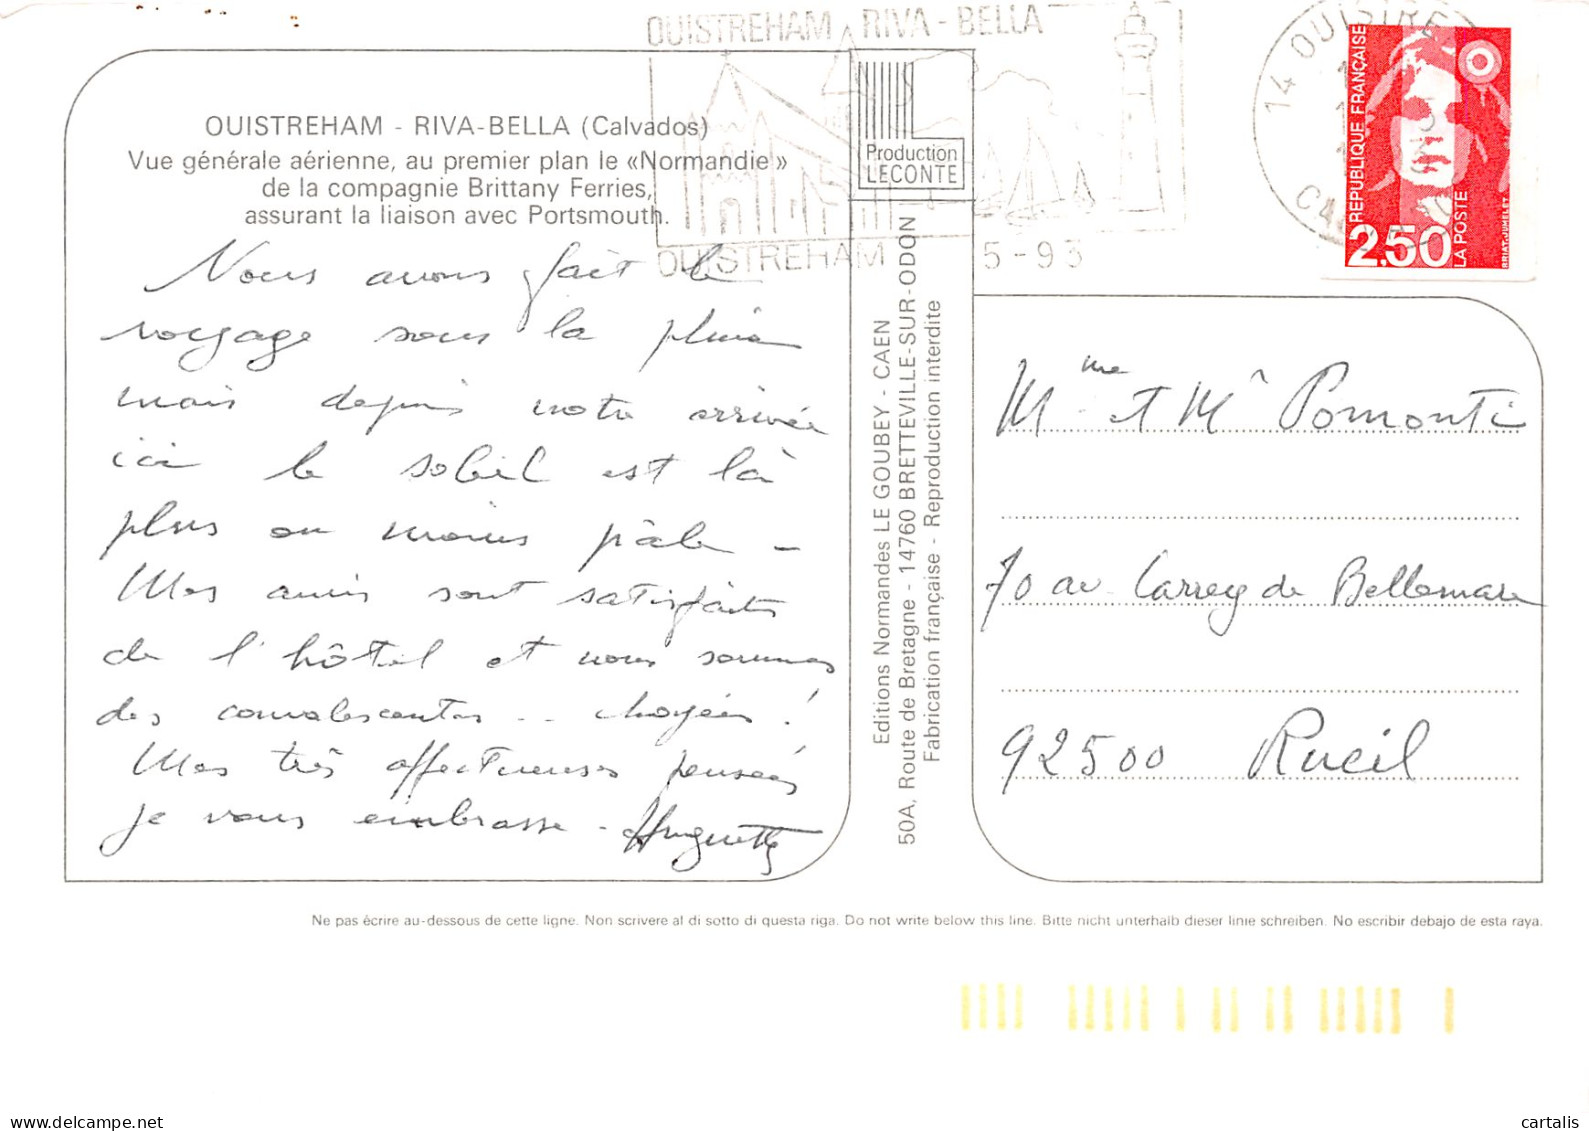 OUISTREHAM - RIVA-BELLA
OUISTREHAM 5-93
14 OUISTRE
REPUBLIQUE FRANÇAISE
2.50
LA POSTE
BRIAT-JUMELET
OUISTREHAM - RIVA-BELLA (Calvados)
Vue générale aérienne, au premier plan le «Normandie»
de la compagnie Brittany Ferries,
assurant la liaison avec Portsmouth.
Production
LECONTE
Nous avons fait le
voyage sous la pluie
mais depuis notre arrivée
ici le soleil est là
plus ou moins pâle -
Mes amis sont satisfaits
de l'hôtel et nous sommes
des convalescentes .. choyées!
Mes très affectueuses pensées
je vous embrasse - Huguette
Editions Normandes LE GOUBEY - CAEN
50A, Route de Bretagne - 14760 BRETTEVILLE-SUR-ODON
Fabrication française - Reproduction interdite
Mme et Mr Pomonti
70 av Carrey de Bellemare
92500 Rueil
Ne pas écrire au-dessous de cette ligne. Non scrivere al di sotto di questa riga. Do not write below this line. Bitte nicht unterhalb dieser linie schreiben. No escribir debajo de esta raya.
delcampe.net
cartalis